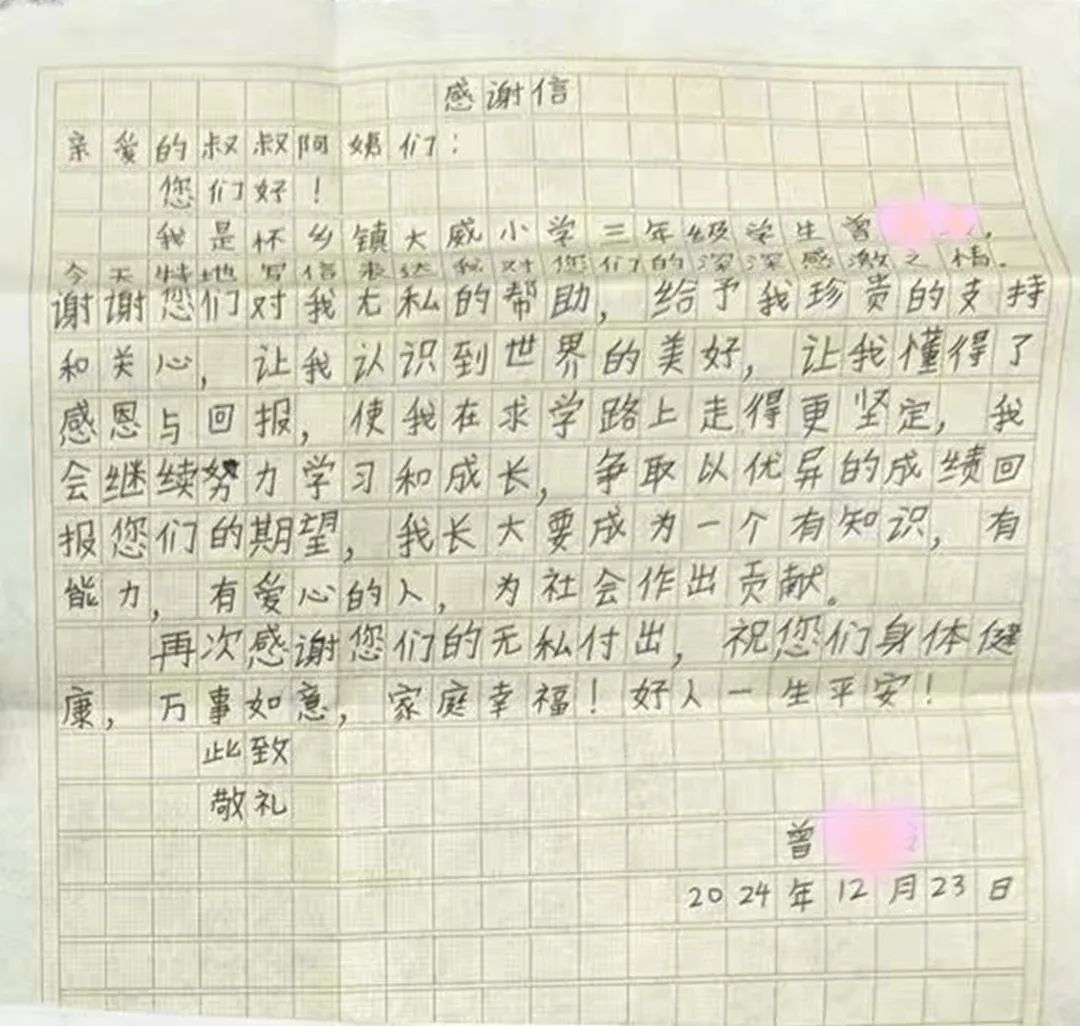 感谢信
亲爱的叔叔阿姨们：
您们好！
我是怀乡镇大威小学三年级学生曾
今天特地写信表达我对您们的深深感激之情。
谢谢您们对我无私的帮助，给予我珍贵的支持
和关心，让我认识到世界的美好，让我懂得了
感恩与回报，使我在求学路上走得更坚定，我
会继续努力学习和成长，争取以优异的成绩回
报您们的期望，我长大要成为一个有知识，有
能力，有爱心的人，为社会作出贡献。
再次感谢您们的无私付出，祝您们身体健
康，万事如意，家庭幸福！好人一生平安！
此致
敬礼
曾
2024年12月23日